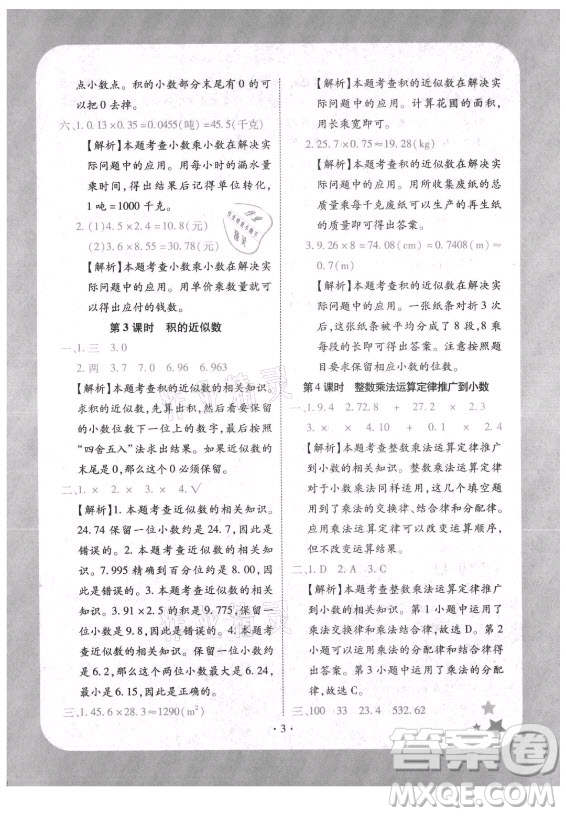 点小数点。积的小数部分末尾有 0 的可
以把 0 去掉。
六、1. 0.13×0.35=0.0455(吨)=45.5(千克)
【解析】本题考查小数乘小数在解决实
际问题中的应用。用每小时的漏水量
乘时间,得出结果后记得单位转化,
1 吨=1000 千克。
2. (1)4.5×2.4=10.8(元)
(2)3.6×8.55=30.78(元)
【解析】本题考查小数乘小数在解决实
际问题中的应用。用单价乘数量,得
出应付的钱数。
第 3 课时 积的近似数
一、1. 三 3.0
2. 两 3.7 6.96 6.963
【解析】本题考查积的近似数的相关知识。
求积的近似数,先算出积,然后看需要保留
的小数位数下一位上的数字,再按照
“四舍五入”法求出结果。如果近似数的
末尾是 0,这个 0 应当保留。
二、1. × 2. × 3. × 4. √
【解析】1. 本题考查近似数的相关知识。
24.74 保留一位小数约是 24.7,因此是
错误的。2. 本题考查近似数的相关知识。
7.995 精确到百分位约是 8.00,因此是
错误的。3. 本题考查积的近似数的相关
知识。3.91×2.5 的积是 9.775,保留
一位小数约是 9.8,因此是错误的。4. 本题考
查近似数的相关知识。保留一位小数
是 6.2,那么这个两位小数最大是 6.24,最
小是 6.15,因此是对的。
三、1. 45.6×28.3≈1290(m²)
【解析】本题考查积的近似数在解决实
际问题中的应用。计算花圃的面积,
用长乘宽即可。
2. 25.7×0.75≈19.28(kg)
【解析】本题考查积的近似数在解决实
际问题中的应用。用所收集废纸的总
质量乘每千克废纸可以生产的再生纸
的质量可以得出答案。
3. 9.26×8=74.08(cm)=0.7408(m)
≈0.74(m)
【解析】本题考查积的近似数在解决实
际问题中的应用。一张纸条对折 3 次
后,这张纸条平均分成了 8 段,8 乘每
段的长度就是这张纸条的长度。注意
单位换算和保留小数的位数。
第 4 课时 整数乘法运算定律推广到小数
一、1. 9.4 2.72.8 × 2.7 × 2.3
× 0.4 + 0.1 0.4
【解析】本题考查整数乘法运算定律推广
到小数的相关知识。整数乘法运算定律对
于小数乘法同样适用,这几个填空题
用到了乘法的交换律、结合律和分配律。
应用乘法运算定律可以改变运算顺序,
但不可以改变运算结果。
二、1. D 2. A 3. C
【解析】本题考查整数乘法运算定律推广
到小数的相关知识。第 1 小题运用了
乘法交换律和乘法结合律,故选 D。第 2 小
题运用了乘法交换律和乘法结合律得
出答案。第 3 小题运用了乘法的分配
律,故选 C。
三、100 33 23.4 532.62
· 3 ·
答案圈
MXQE.COM